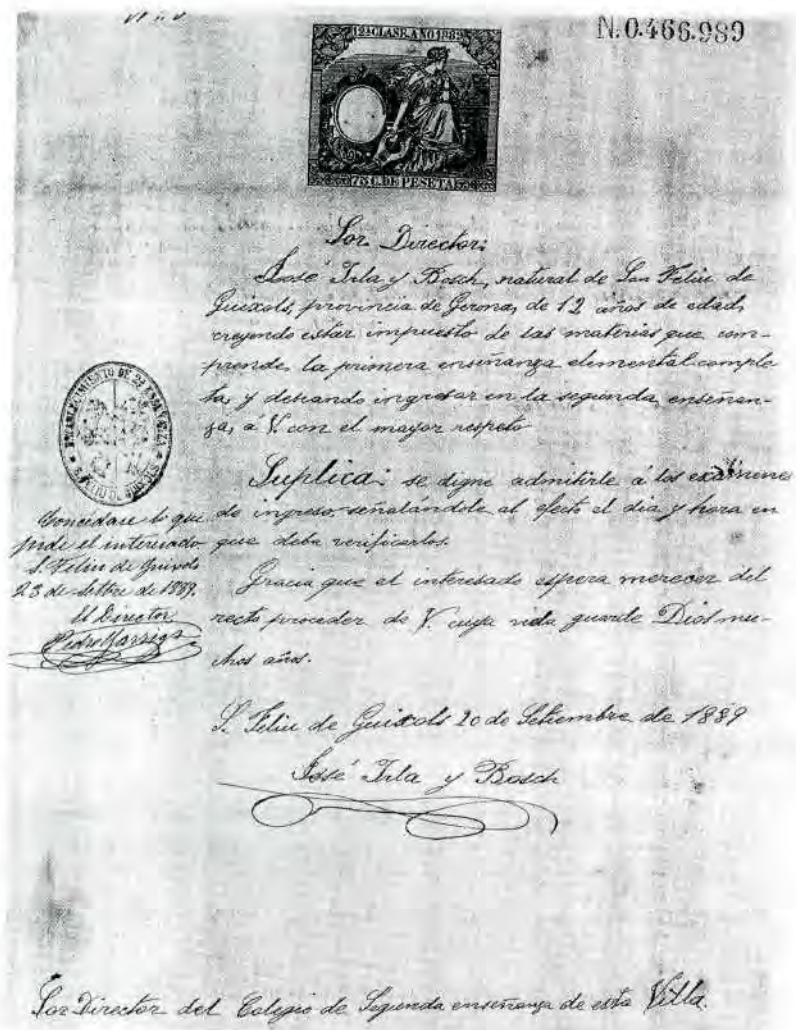 N. 0.466.989
12ª CLASE. AÑO 1889
75 C. DE PESETA
Sor. Director:
José Irla y Bosch, natural de San Feliu de
Guixols, provincia de Gerona, de 12 años de edad,
creyendo estar impuesto de las materias que com-
prende la primera enseñanza elemental comple-
ta, y deseando ingresar en la segunda enseñan-
za, á V. con el mayor respeto
Suplica: se digne admitirle á los exámenes
de ingreso señalándole al efecto el dia y hora en
que deba verificarlos.
Gracia que el interesado espera merecer del
recto proceder de V. cuya vida guarde Dios mu-
chos años.
S. Feliu de Guixols 20 de Setiembre de 1889
José Irla y Bosch
ESTABLECIMIENTO DE 2ª ENSEÑANZA
S. FELIU DE GUIXOLS
Concédase lo que
pide el interesado
S. Feliu de Guixols
23 de Setbre de 1889.
El Director
Pedro
Sor Director del Colegio de Segunda enseñanza de esta Villa.